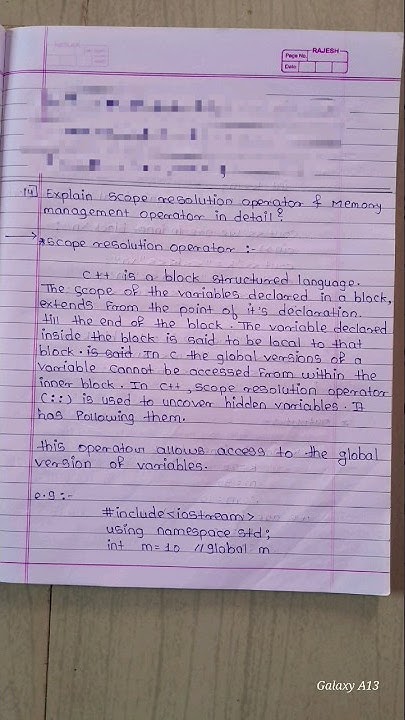 RAJESH
Page No.
Date
14 Explain scope resolution operator & Memory
management operator in detail?
→ *scope resolution operator :-
C++ is a block structured language.
The scope of the variables declared in a block,
extends from the point of it's declaration.
till the end of the block. The variable declared
inside the block is said to be local to that
block. is said In C the global versions of a
variable cannot be accessed from within the
inner block. In C++, scope resolution operator
(::) is used to uncover hidden variables. It
has following them.
this operator allows access to the global
version of variables.
e.g :-
#include<iostream>
using namespace std;
int m=10 //global m
Galaxy A13